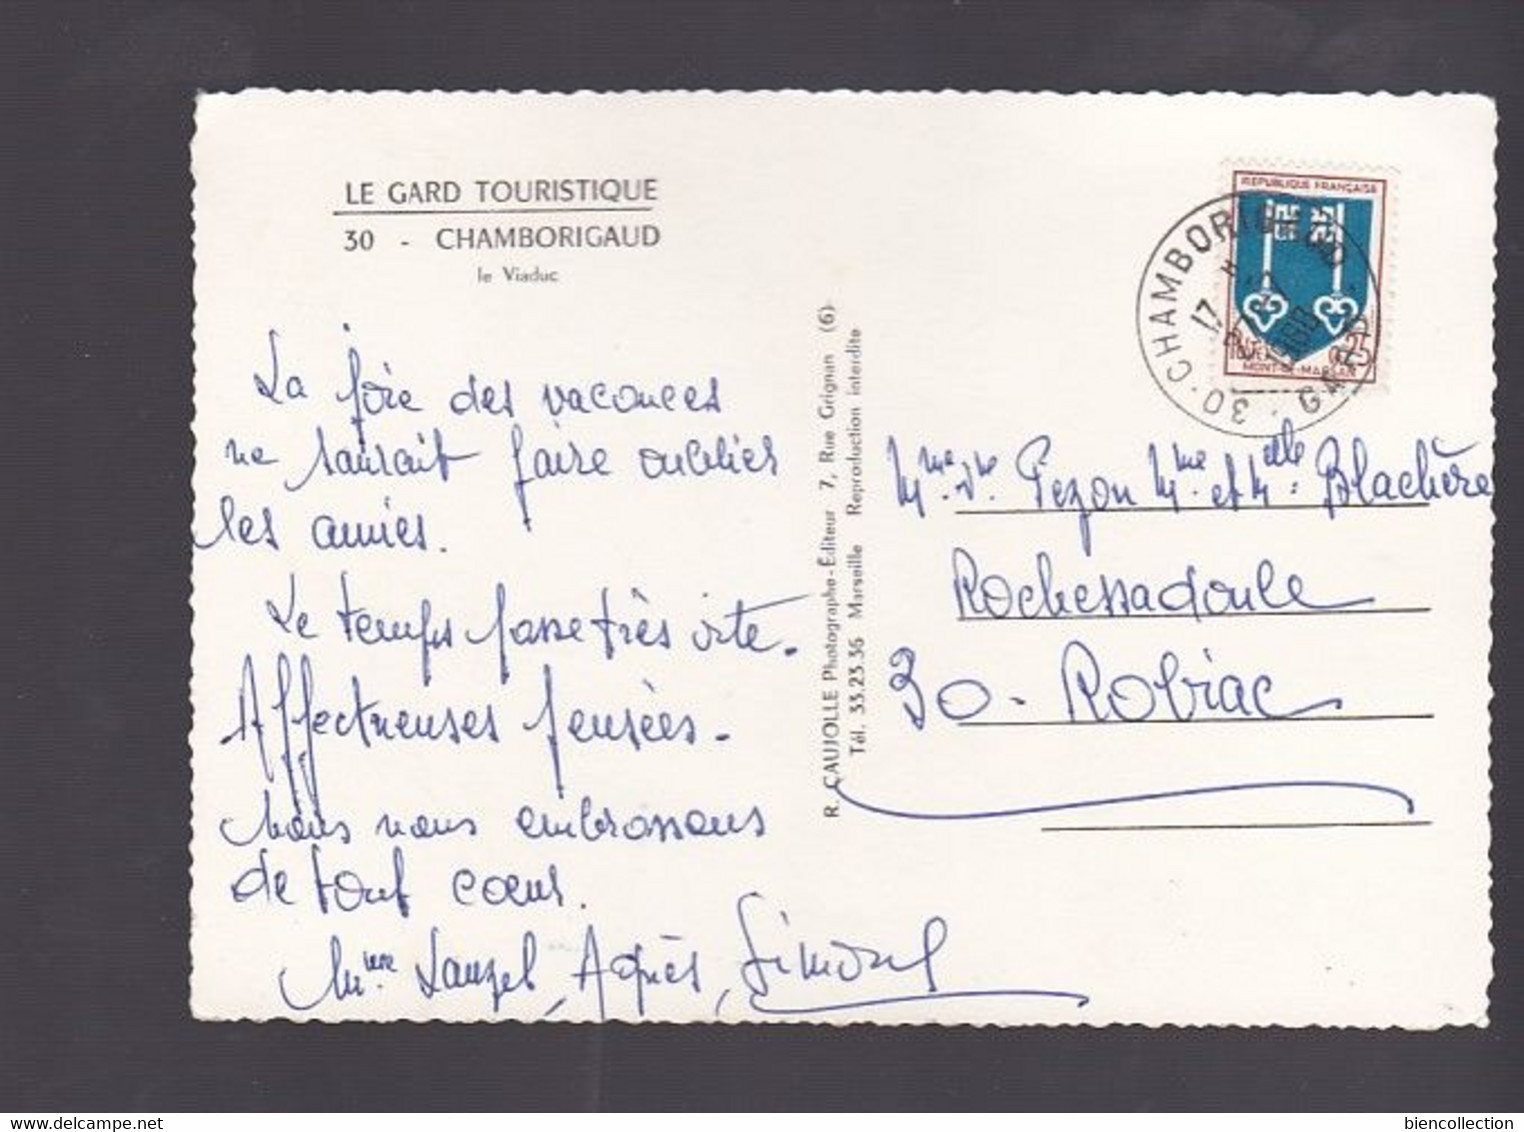 LE GARD TOURISTIQUE
30 - CHAMBORIGAUD
le Viaduc
La joie des vacances
ne saurait faire oublier
les amies.
Le temps passe très vite.
Affectueuses pensées.
Nous vous embrassons
de tout cœur.
Mme Lauzel, Agnès, Simone
R. CAUJOLLE Photographe-Éditeur 7, Rue Grignan (6)
Tél. 33.23.36 Marseille Reproduction interdite
REPUBLIQUE FRANÇAISE
0,25
MONT-DE-MARSAN
CHAMBORIGAUD
17
30 · GARD
Mme Vve Pezon Mme et Melle Blachère
Rochessadoule
30 - Robiac
biencollection